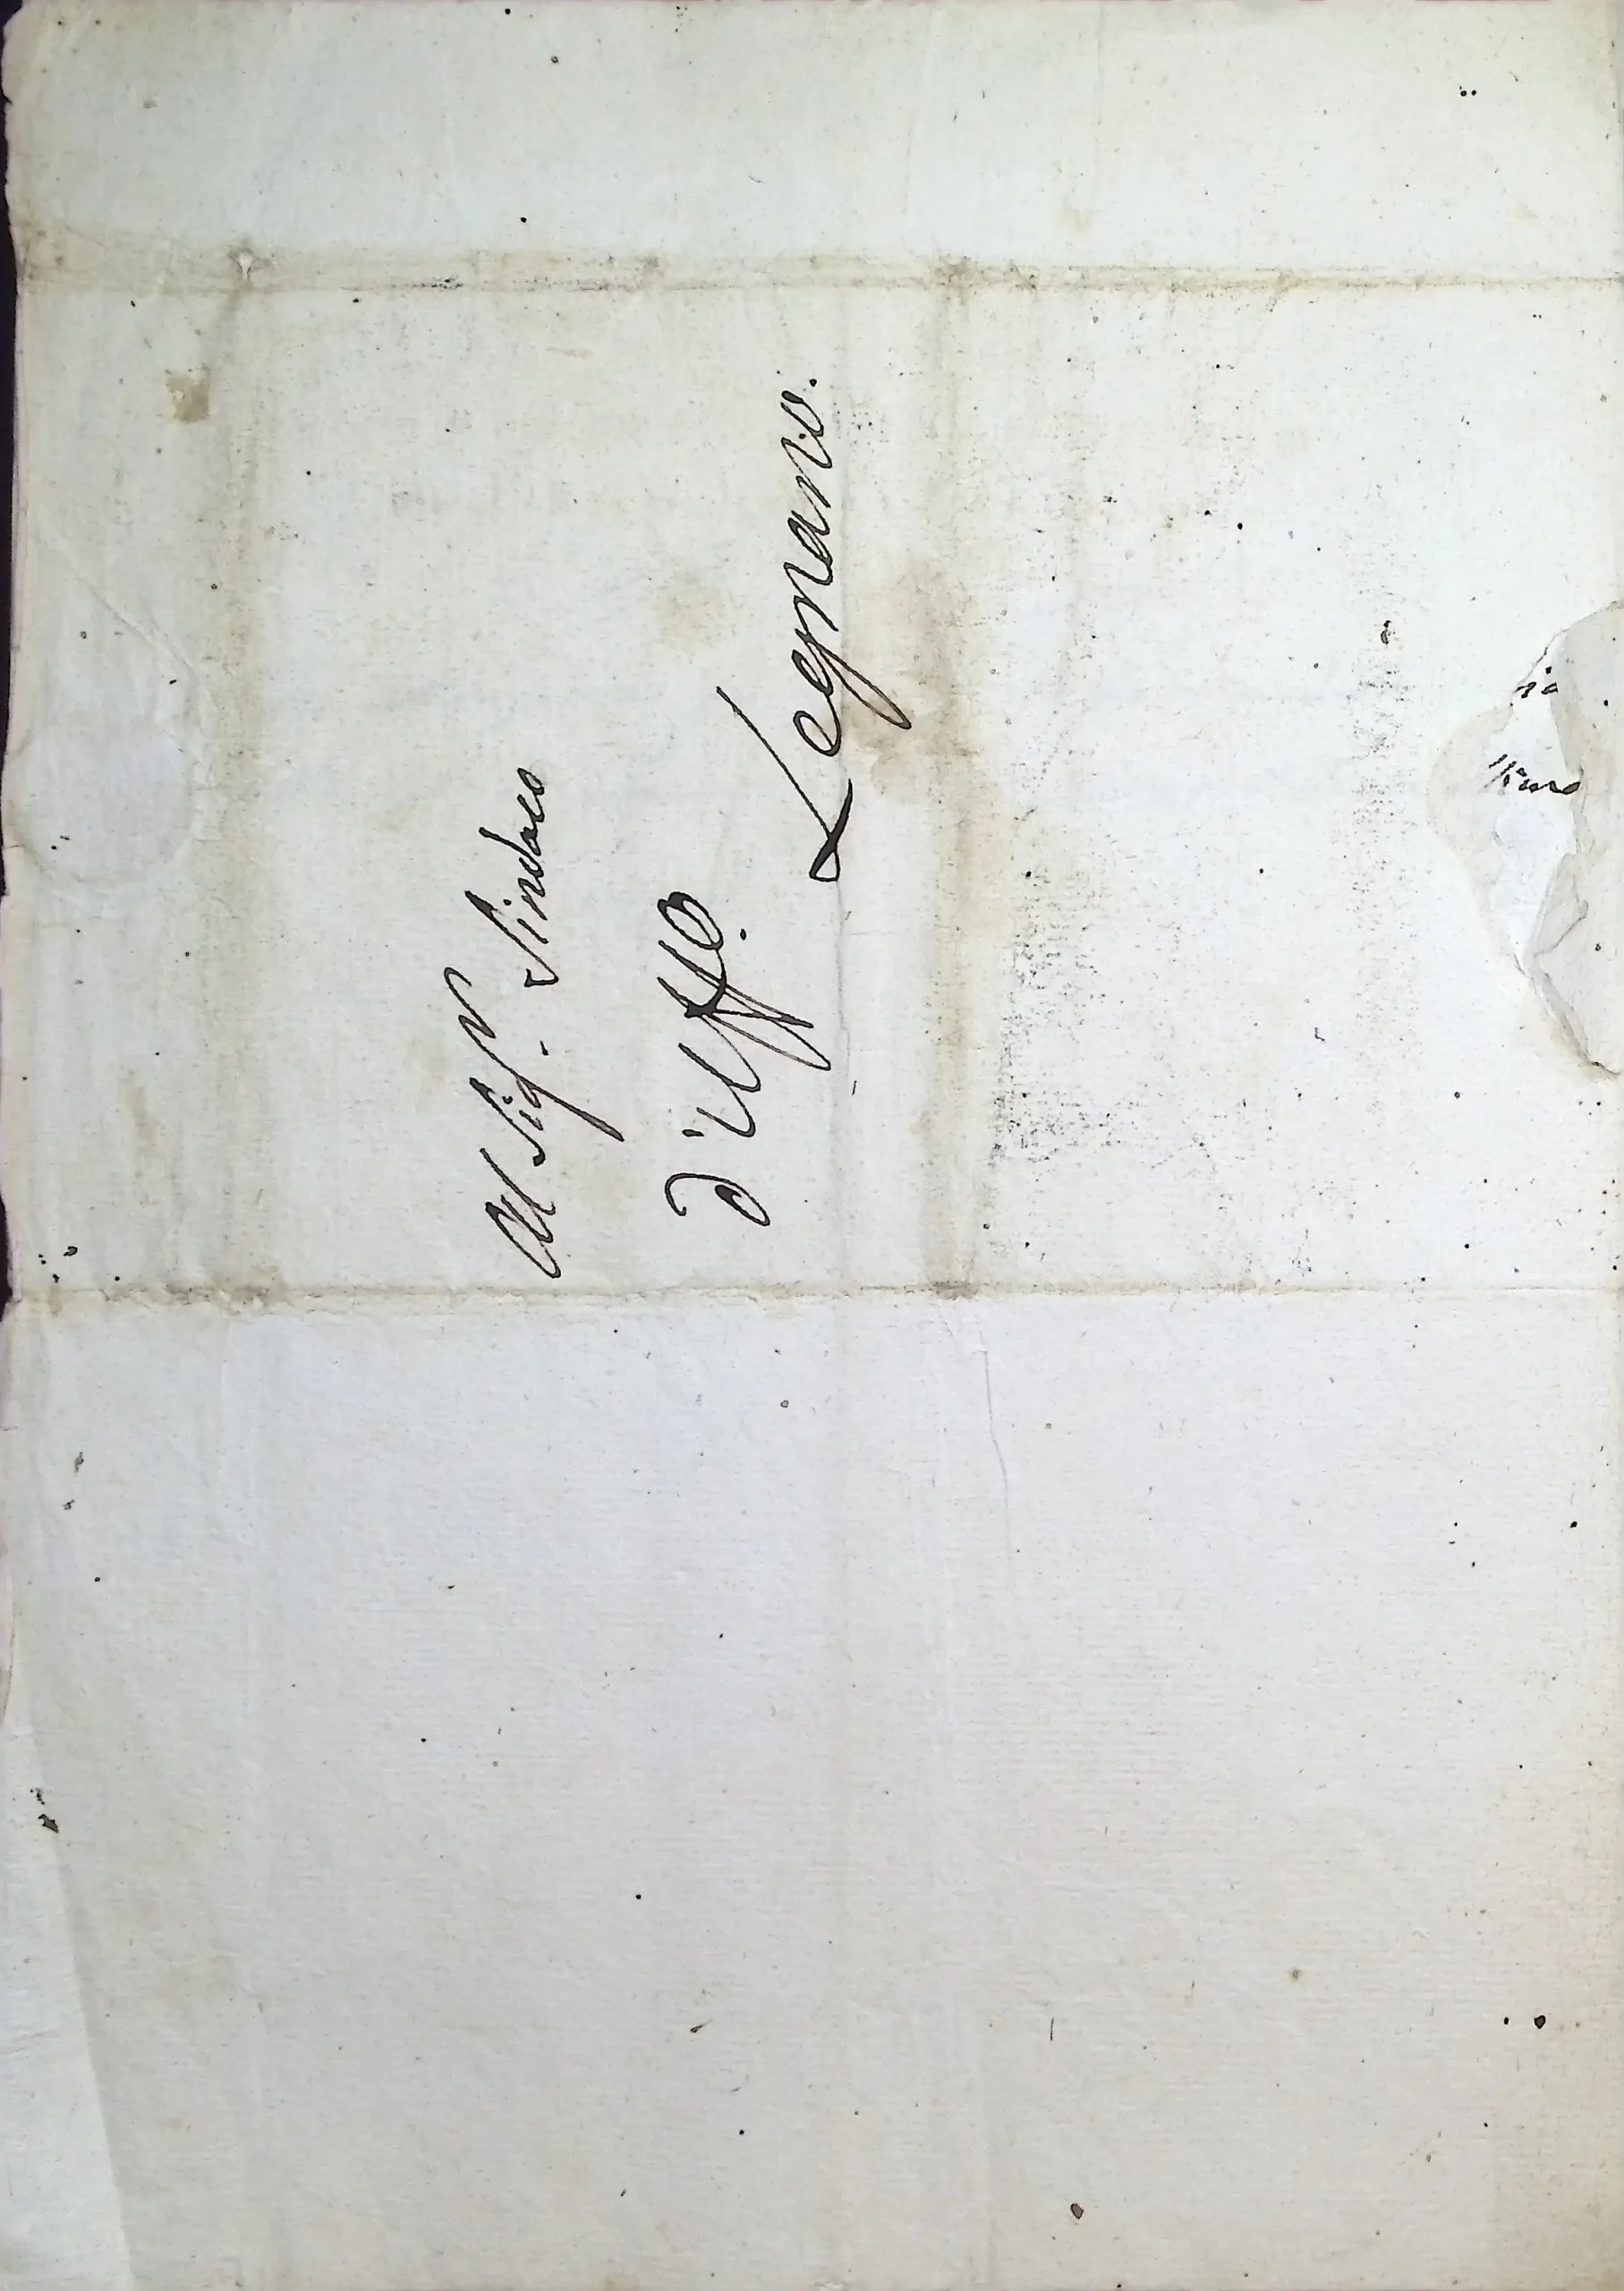 Al Sig.r Sindaco
d'Uff.o
Legnano.